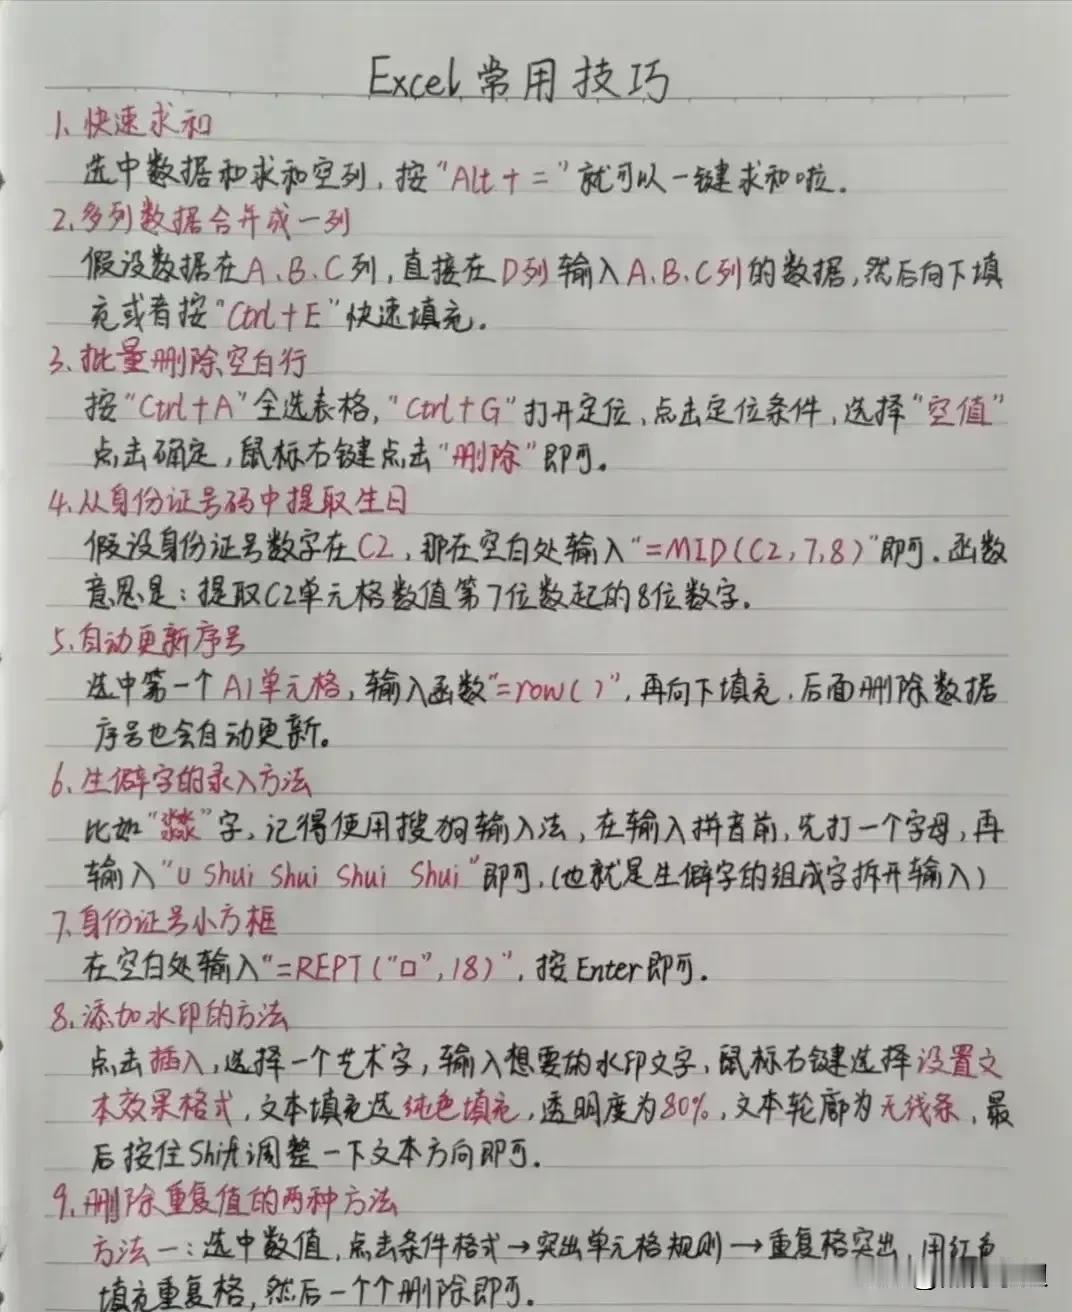 Excel常用技巧
1、快速求和
选中数据和求和空列，按“Alt+=”就可以一键求和啦。
2、多列数据合并成一列
假设数据在A、B、C列，直接在D列输入A、B、C列的数据，然后向下填
充或者按“Ctrl+E”快速填充。
3、批量删除空白行
按“Ctrl+A”全选表格，“Ctrl+G”打开定位、点击定位条件，选择“空值”
点击确定，鼠标右键点击“删除”即可。
4、从身份证号码中提取生日
假设身份证号数字在C2，那在空白处输入“=MID(C2,7,8)”即可。函数
意思是：提取C2单元格数值第7位数起的8位数字。
5、自动更新序号
选中第一个A1单元格，输入函数“=row()”，再向下填充，后面删除数据
序号也会自动更新。
6、生僻字的录入方法
比如“㵘”字，记得使用搜狗输入法，在输入拼音前，先打一个字母，再
输入“U Shui Shui Shui Shui”即可，(也就是生僻字的组成字拆开输入)
7、身份证号小方框
在空白处输入“=REPT("口",18)”，按Enter即可。
8、添加水印的方法
点击插入，选择一个艺术字，输入想要的水印文字，鼠标右键选择设置文
本效果格式，文本填充选纯色填充，透明度为80%，文本轮廓为无线条，最
后按住Shift调整一下文本方向即可。
9、删除重复值的两种方法
方法一：选中数值，点击条件格式→突出单元格规则→重复格突出，用红色
填充重复格，然后一个个删除即可。